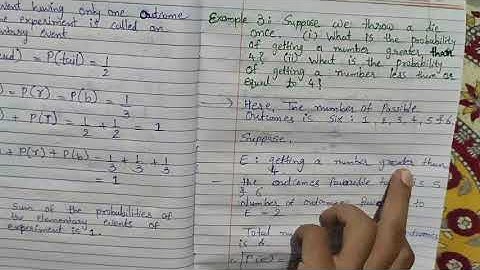 event having only one outcome
the experiment is called an
event
P(tail) = 1/2
= P(r) = P(b) = 1/3
+ P(T) = 1/2 + 1/2 = 1
+ P(r) + P(b) = 1/3 + 1/3 + 1/3
= 1
Sum of the probabilities of
the elementary events of
experiment is 1.
Example 3: Suppose we throw a die
once. (i) What Is the probability
of getting a number greater than
4? (ii) What is the probability
of getting a number less than or
equal to 4?
Here, The number of Possible
Outcomes is Six: 1, 2, 3, 4, 5 & 6.
Suppose,
E: getting a number greater than
4
the outcomes favorable to is 5
& 6
number of outcomes to
E = 2
Total
is 6.